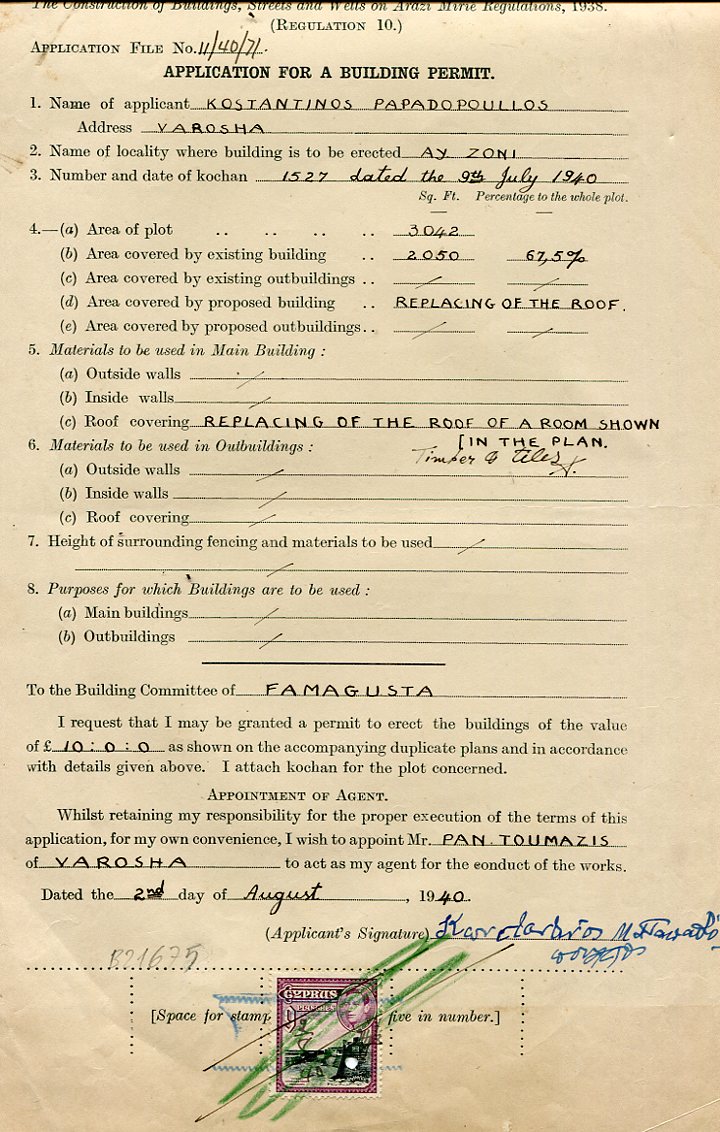 The Construction of Buildings, Streets and Wells on Arazi Mirie Regulations, 1938.
(REGULATION 10.)
APPLICATION FILE No. 11/40/71.
APPLICATION FOR A BUILDING PERMIT.
1. Name of applicant KOSTANTINOS PAPADOPOULLOS
Address VAROSHA
2. Name of locality where building is to be erected AY ZONI
3. Number and date of kochan 1527 dated the 9th July 1940
Sq. Ft. Percentage to the whole plot.
4.—(a) Area of plot .. .. .. .. 3042
(b) Area covered by existing building .. 2050 67,5%
(c) Area covered by existing outbuildings ..
(d) Area covered by proposed building .. REPLACING OF THE ROOF.
(e) Area covered by proposed outbuildings..
5. Materials to be used in Main Building :
(a) Outside walls
(b) Inside walls
(c) Roof covering REPLACING OF THE ROOF OF A ROOM SHOWN
[IN THE PLAN.
6. Materials to be used in Outbuildings :
Timber & tiles
(a) Outside walls
(b) Inside walls
(c) Roof covering
7. Height of surrounding fencing and materials to be used
8. Purposes for which Buildings are to be used :
(a) Main buildings
(b) Outbuildings
To the Building Committee of FAMAGUSTA
I request that I may be granted a permit to erect the buildings of the value
of £ 10 : 0 : 0 as shown on the accompanying duplicate plans and in accordance
with details given above. I attach kochan for the plot concerned.
APPOINTMENT OF AGENT.
Whilst retaining my responsibility for the proper execution of the terms of this
application, for my own convenience, I wish to appoint Mr. PAN. TOUMAZIS
of VAROSHA to act as my agent for the conduct of the works.
Dated the 2nd day of August, 1940.
(Applicant's Signature)
B21675
CYPRUS
[Space for stamp five in number.]